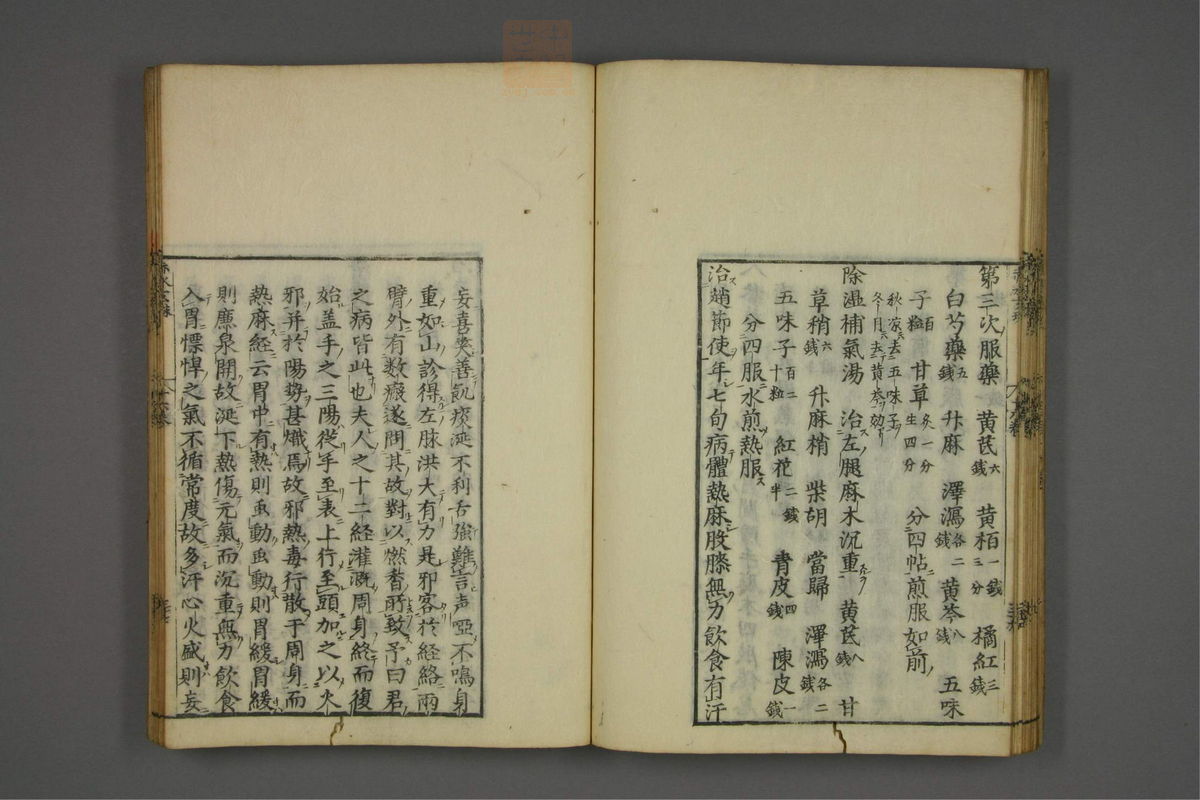 第三次服藥 黄芪六錢 黄栢一錢三分 橘紅三錢
白芍藥五錢 升麻 澤瀉各二錢 黄芩八錢 五味
子百粒 甘草炙一分生四分 分四帖煎服如前
秋家去五味子
冬月去黄芩
除湿補氣湯 治左腿麻木沉重 黄芪八錢 甘
草梢六錢 升麻梢 柴胡 當歸 澤瀉各二錢
五味子百二十粒 紅花二錢半 青皮四錢 陳皮一錢
分四服水煎熱服
治趙節使年七旬病體熱麻股膝無力飲食有汗
妄喜笑善飢痰涎不利舌強難言声啞不鳴身
重如山診得左脉洪大有力是邪客於経絡兩
臂外有數瘢遂問其故對以燃香所致予曰君
之病皆此也夫人之十二経灌溉周身終而復
始盖手之三陽從手至表上行至頭加之以火
邪并於陽勢甚熾焉故邪熱毒行散于周身而
熱麻経云胃中有熱則虫動虫動則胃緩胃緩
則廉泉開故涎下熱傷元氣而沉重無力飲食
入胃慓悍之氣不循常度故多汗心火盛則妄